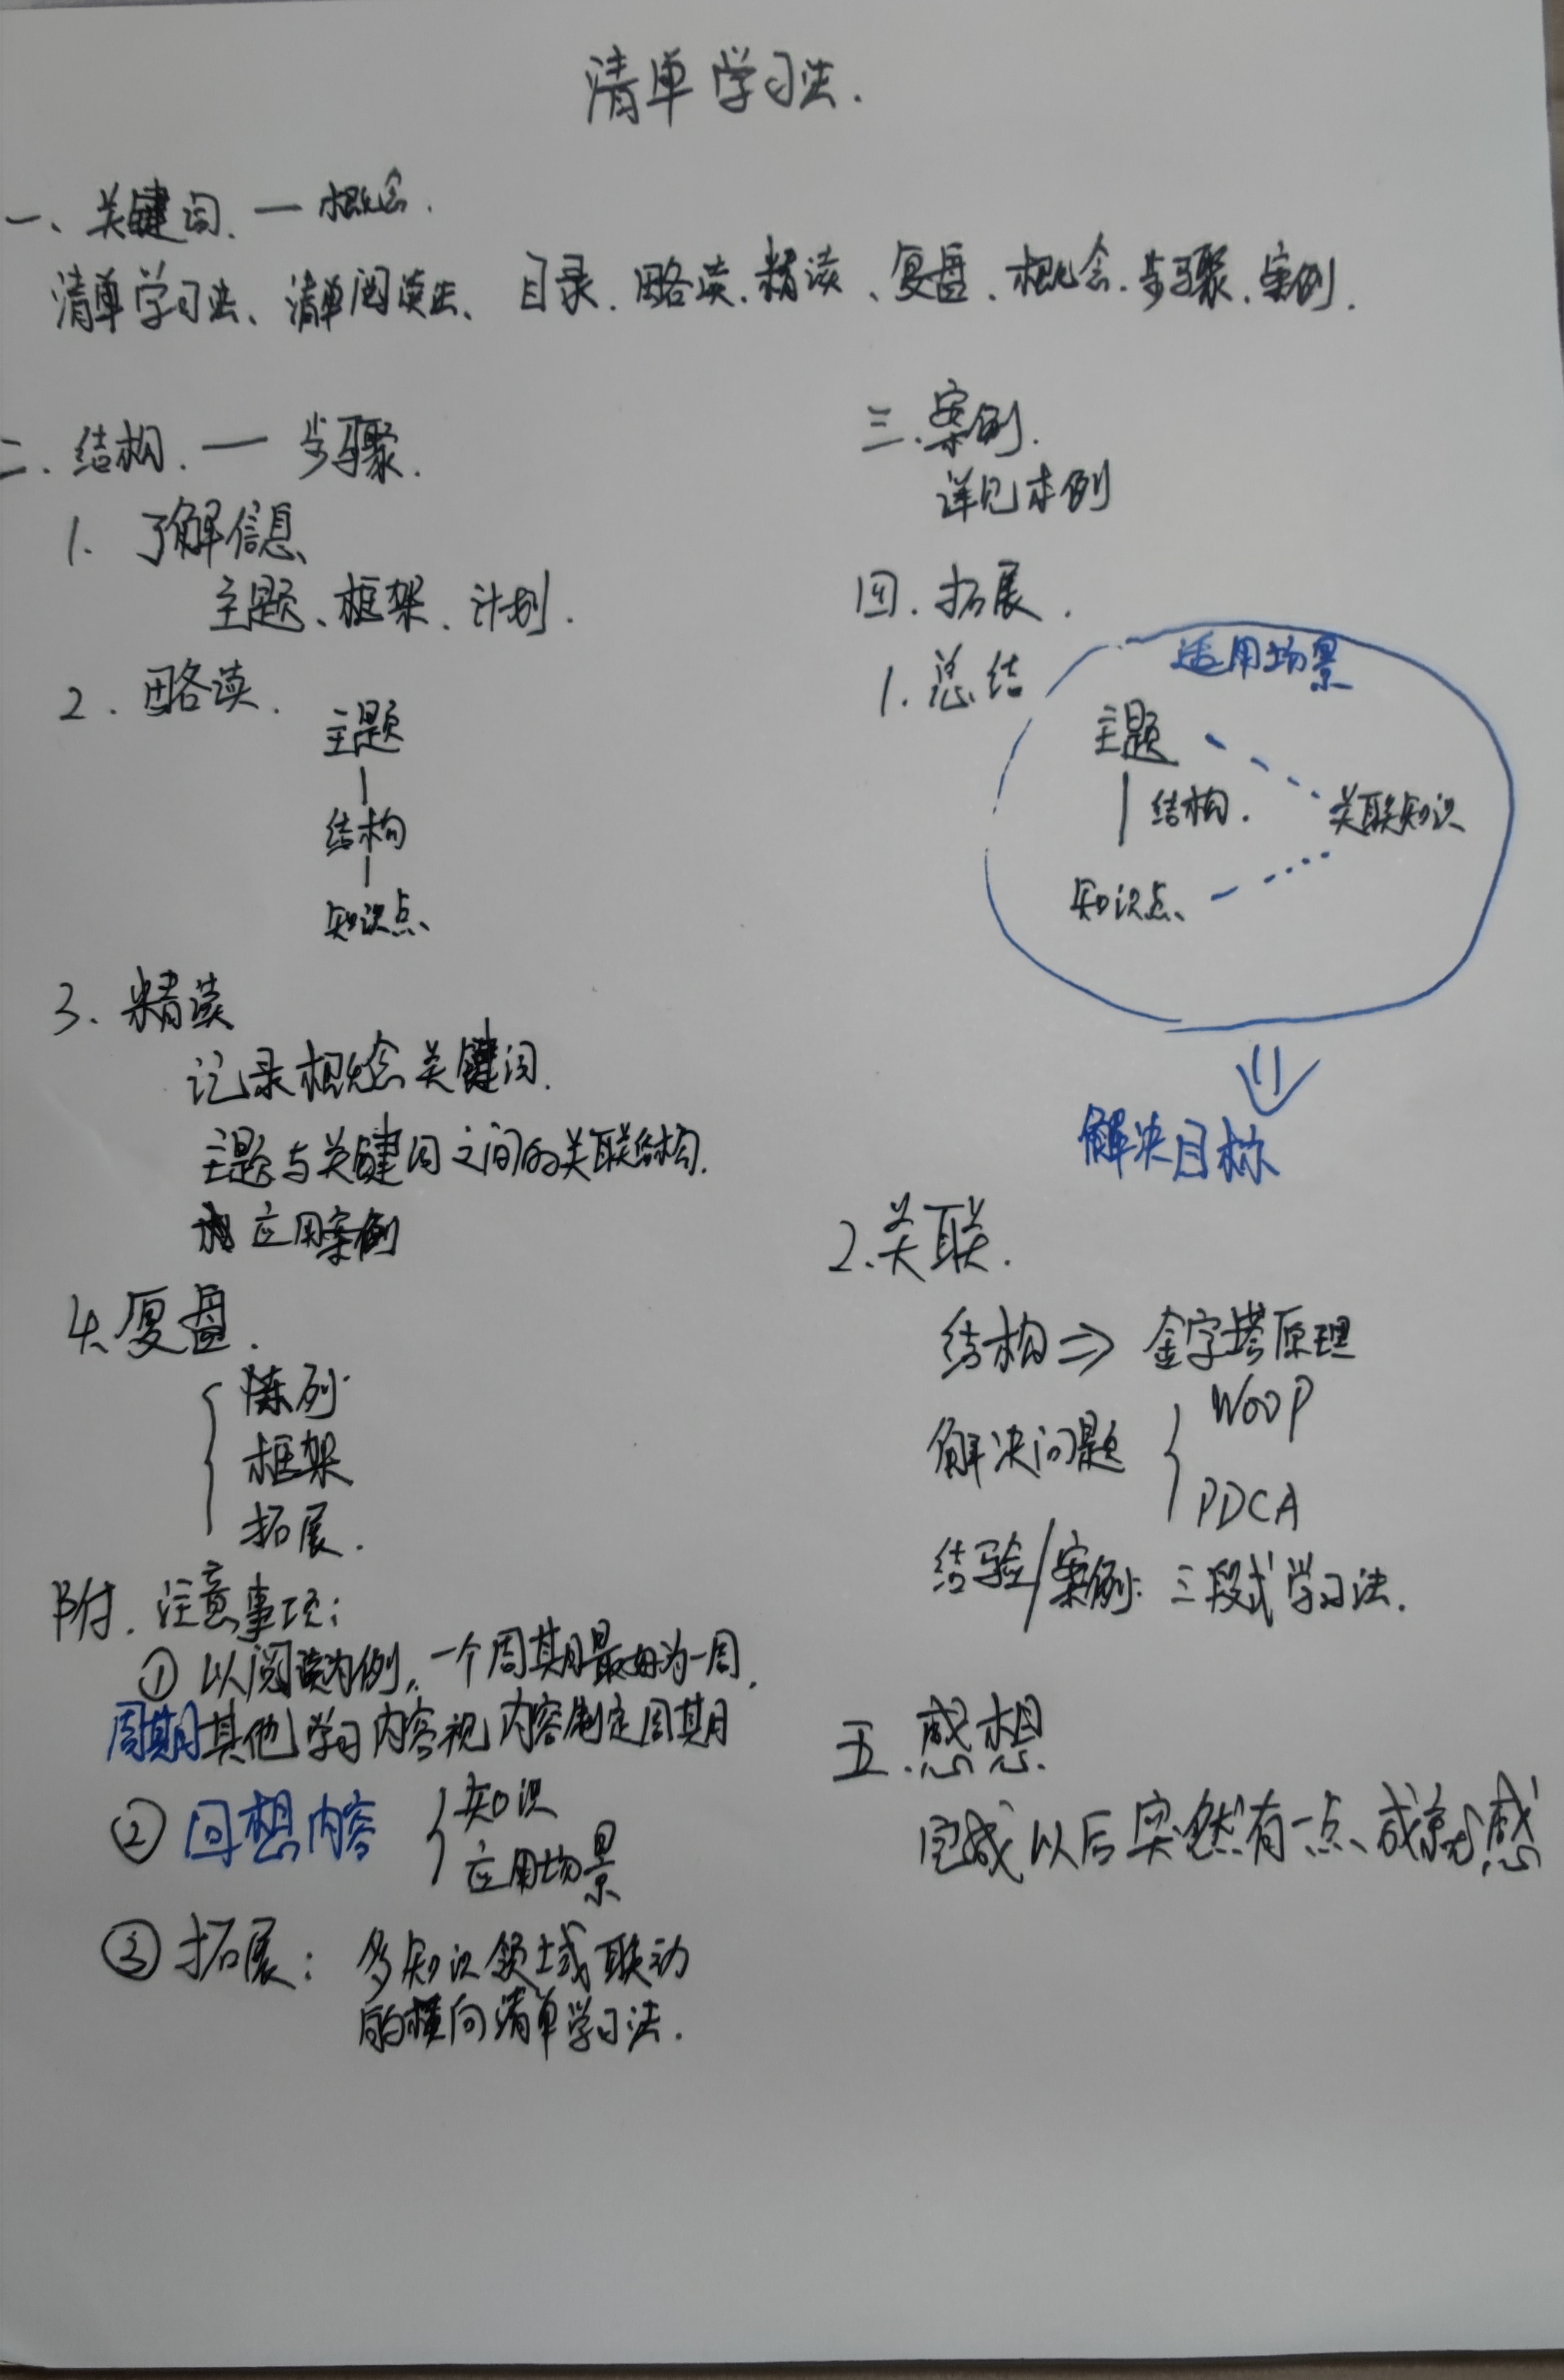 清单学习法.
一、关键词. — 概念.
清单学习法、清单阅读法、目录.略读.精读、复盘.概念.步骤.案例.
二.结构. — 步骤.
1.了解信息
主题、框架.计划.
2.略读.
主题
结构
知识点
3、精读
记录概念关键词.
主题与关键词之间的关联结构.
应用案例
4、复盘.
陈列
框架
拓展.
附.注意事项:
① 以阅读为例,一个周期最好为一周.
周期其他学习内容视内容制定周期
② 回想内容 { 知识
应用场景
③ 拓展: 多知识领域联动
的横向清单学习法.
三.案例.
详见本例
四.拓展.
1.总结
适用场景
主题
结构.
关联知识
知识点
解决目标
2.关联.
结构⇒ 金字塔原理
解决问题 { WOOP
PDCA
结验/案例: 三段式学习法.
五.感想.
完成以后突然有一点成就感